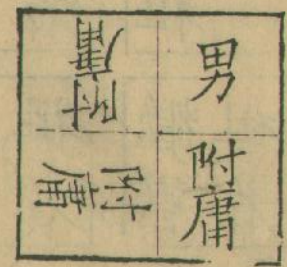 男
附庸
附庸
附庸